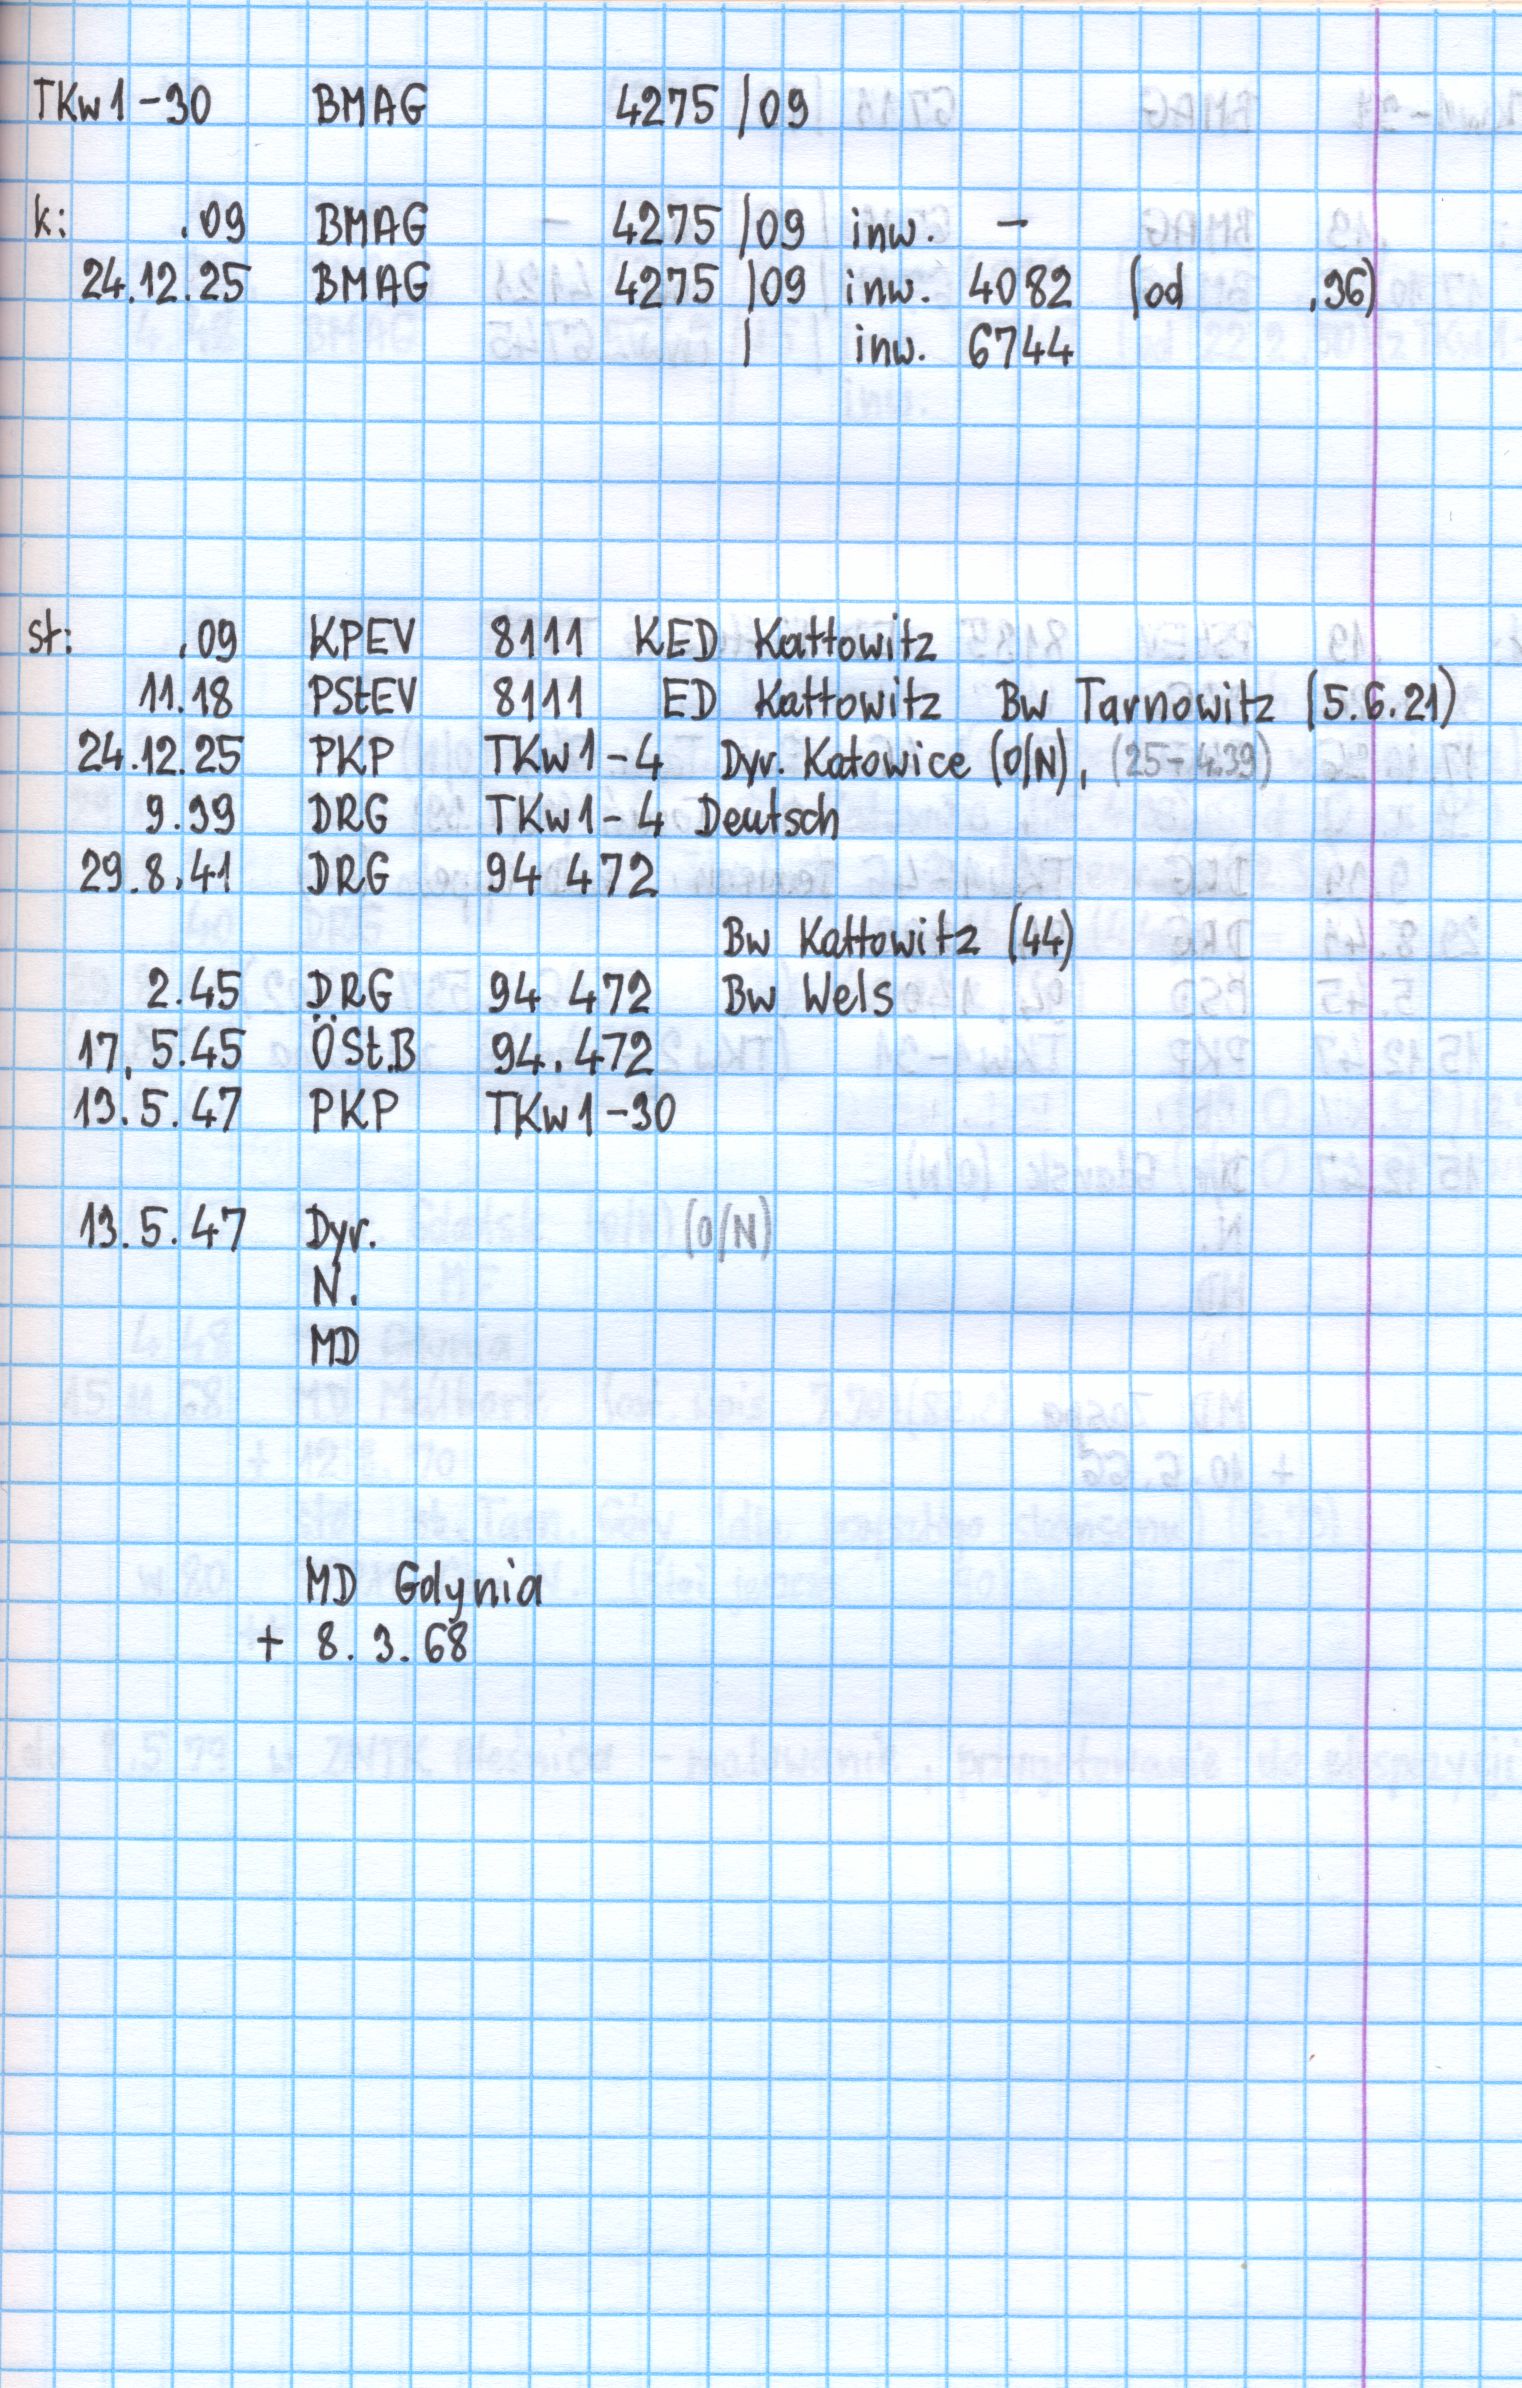 TKw1-30 BMAG 4275/09
k: .09 BMAG 4275/09 inw. -
24.12.25 BMAG 4275/09 inw. 4082 (od .36)
/ inw. 6744
st: .09 KPEV 8111 KED Kattowitz
11.18 PStEV 8111 ED Kattowitz Bw Tarnowitz (5.6.21)
24.12.25 PKP TKw1-4 Dyr. Katowice (O/N), (25-4.39)
9.39 DRG TKw1-4 Deutsch
29.8.41 DRG 94 472
Bw Kattowitz (44)
2.45 DRG 94 472 Bw Wels
17.5.45 ÖSt.B 94.472
13.5.47 PKP TKw1-30
13.5.47 Dyr. (O/N)
N.
MD
MD Gdynia
+ 8.3.68